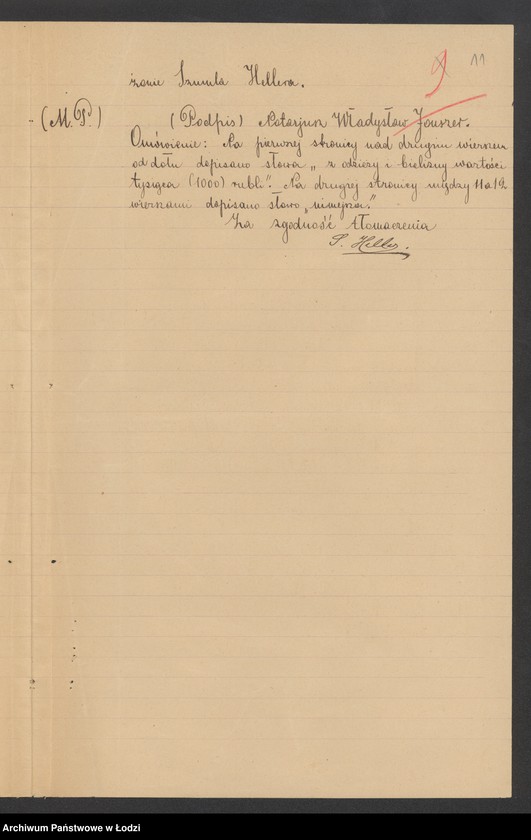 9 11
żanie Szmula Hellera.
(M.P.) (Podpis) Notarjusz Władysław Jonszer.
Omówienie: Na pierwszej stronicy nad drugim wierszem
od dołu dopisano słowa „z odzieży i bielizny wartości
tysiąca (1000) rubli". Na drugiej stronicy między 11 a 12
wierszami dopisano słowo „niniejsza."
Za zgodność tłomaczenia
S. Heller.
Archiwum Państwowe w Łodzi